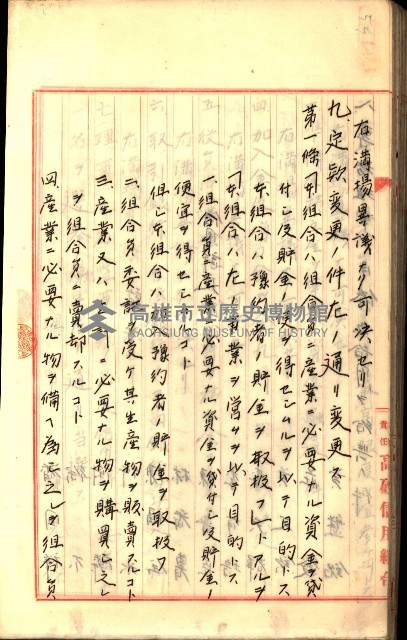 一、右満場異議ナク可決セリ
九、定款変更ノ件左ノ通リ変更ス
第一條「本組合ハ組合員ニ産業ニ必要ナル資金ヲ貸
付シ及貯金ノ便宜ヲ得セシムルヲ以テ目的トス
本組合ハ豫約者ノ貯金ヲ取扱フ」トアルヲ
「本組合ハ左ノ事業ヲ営ムヲ以テ目的トス
一、組合員ニ産業ニ必要ナル資金ヲ貸付シ及貯金ノ
便宜ヲ得セシムルコト
但シ本組合ハ豫約者ノ貯金ヲ取扱フ
二、組合員ノ委託ヲ受ケ其生産物ヲ販賣スルコト
三、産業又ハ ニ必要ナル物ヲ購買シ之レ
ヲ組合員ニ賣却スルコト
四、産業ニ必要ナル物ヲ備ヘ為シ之レヲ組合員
責任 高雄信用組合
高雄市立歷史博物館
KAOHSIUNG MUSEUM OF HISTORY